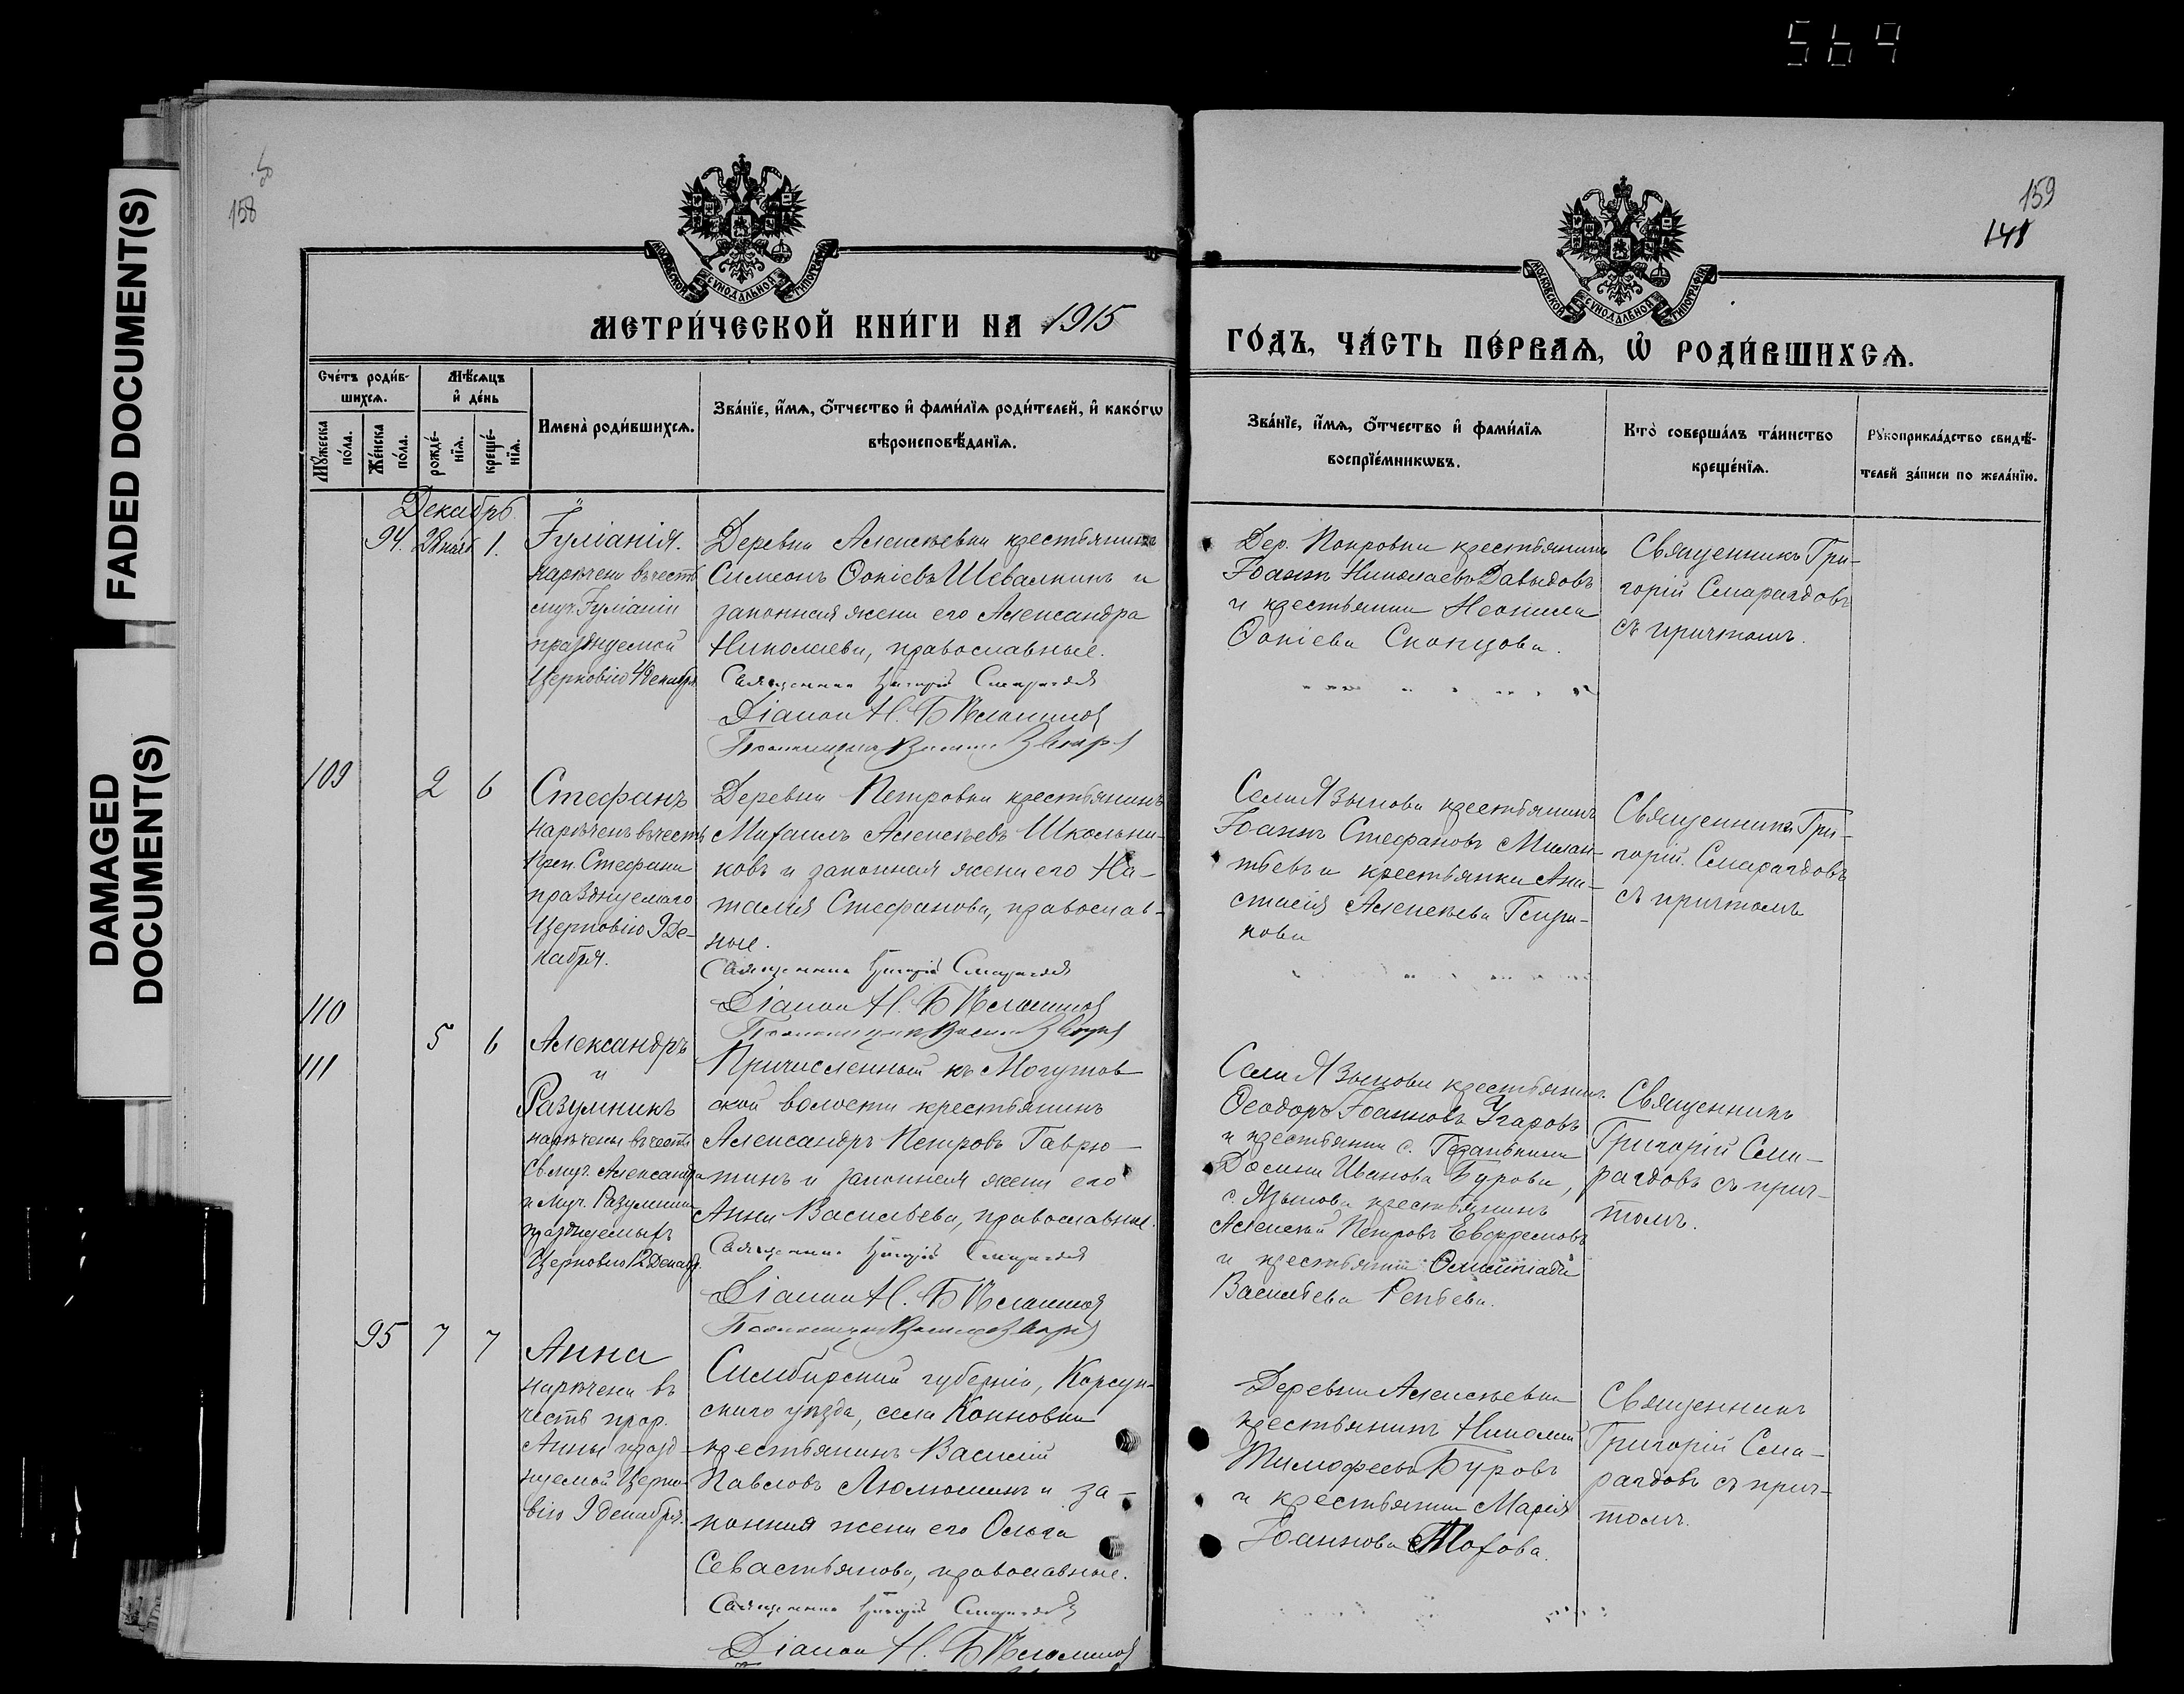 569
FADED DOCUMENT(S)
DAMAGED
DOCUMENT(S)
158
159
141
МОСКОВСКОЙ СѴНОДАЛЬНОЙ ТИПОГРАФІИ
МОСКОВСКОЙ СѴНОДАЛЬНОЙ ТИПОГРАФІИ
МЕТРИ́ЧЕСКОЙ КНИ́ГИ НА 1915
ГО́ДЪ, ЧА́СТЬ ПЕ́РВАѦ, Ѡ РОДИ́ВШИХСѦ.
Сче́тъ роди́в-
шихсѧ.
Мꙋ́жеска
по́ла.
Же́нска
по́ла.
Мѣ́сѧцъ
и҆ де́нь
рожде́-
нїѧ.
креще́-
нїѧ.
Имена̀ роди́вшихсѧ.
Зва́нїе, и҆́мѧ, ѻ҆́тчество и҆ фами́лїѧ роди́телей, и҆ како́гѡ
вѣроисповѣ́данїѧ.
Зва́нїе, и҆́мѧ, ѻ҆́тчество и҆ фами́лїѧ
воспрїе́мникѡвъ.
Кто̀ соверша́лъ та́инство
креще́нїѧ.
Рꙋкоприкла́дство свидѣ́-
телей за́писи по жела́нїю.
Декабрь
94. 28 нояб 1.
Іуліанія.
наречена въ честь
муч. Іуліаніи
празднуемой
Церковію 4 декабря
Деревни Алексѣевки крестьянинъ
Симеонъ Фокіевъ Шевалкинъ и
законная жена его Александра
Николаева, православные.
Священникъ Григорій Смарагдов
Діакон Н. Б
Дер. Покровки крестьянинъ
Іоаннъ Николаевъ Давыдовъ
и крестьянка Неонила
Фокіева Скопцова.
Священникъ Гри-
горій Смарагдовъ
съ причтомъ.
109 2 6
Стефанъ
нареченъ въ честь
Преп. Стефана
празднуемаго
Церковію 9 Де-
кабря.
Деревни Петровки крестьянинъ
Михаилъ Алексѣевъ Школьни-
ковъ и законная жена его На-
талія Стефанова, православ-
ные.
Священникъ Григорій Смарагдов
Діакон Н. Б
Села Языкова крестьянинъ
Іоаннъ Стефановъ Милан-
тьевъ и крестьянка Ана-
стасія Алексѣева
кова
Священникъ Гри-
горій Смарагдовъ
съ причтомъ
110
111
5 6
Александръ
и
Разумникъ
наречены въ честь
Св. муч. Александра
и Муч. Разумника
празднуемыхъ
Церковію 12 Декабр.
Причисленный къ Могутов
ской волости крестьянинъ
Александръ Петровъ Гаврю-
тинъ и законная жена его
Анна Васильева, православные.
Священникъ Григорій Смарагдов
Діакон Н. Б
Села Языкова крестьянинъ
Ѳеодоръ Іоанновъ Угаровъ
и крестьянка с.
Иванова Бурова,
с. Языкова крестьянинъ
Алексѣй Петровъ Евфремовъ
и крестьянка Олимпіада
Васильева Репьева.
Священникъ
Григорій Сма-
рагдовъ съ прич-
томъ.
95 7 7
Анна
наречена въ
честь прор.
Анны празд-
нуемой Церко-
вію 9 декабря.
Симбирской губерніи, Корсун-
скаго уѣзда, села Конновки
крестьянинъ Василій
Павловъ Люлюшинъ и за-
конная жена его Ольга
Севастьянова, православные.
Священникъ Григорій Смарагдов
Діакон Н. Б
Деревни Алексѣевки
крестьянинъ Николай
Тимофеевъ Буровъ
и крестьянка Марія
Іоаннова Мохова.
Священникъ
Григорій Сма-
рагдовъ съ прич-
томъ.